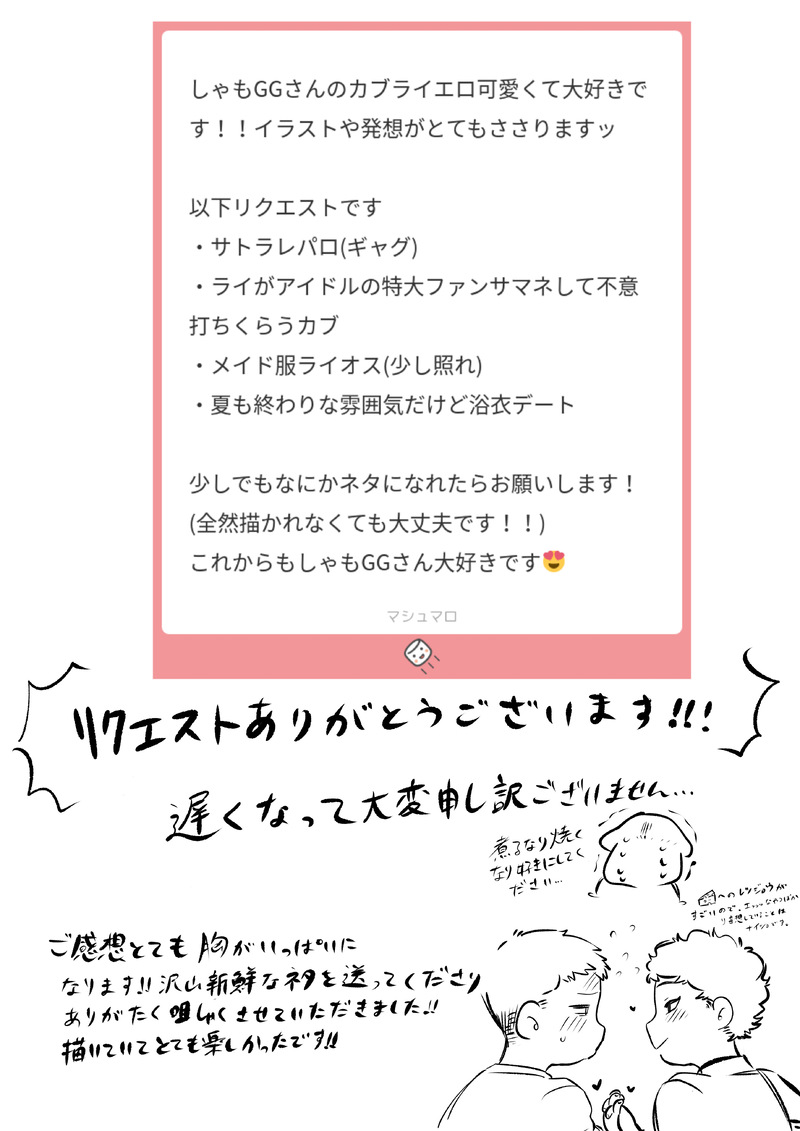 しゃもGGさんのカブライエロ可愛くて大好きで
す！！イラストや発想がとてもささりますッ
以下リクエストです
・サトラレパロ(ギャグ)
・ライがアイドルの特大ファンサマネして不意
打ちくらうカブ
・メイド服ライオス(少し照れ)
・夏も終わりな雰囲気だけど浴衣デート
少しでもなにかネタになれたらお願いします！
(全然描かれなくても大丈夫です！！)
これからもしゃもGGさん大好きです😍
マシュマロ
リクエストありがとうございます!!!
遅くなって大変申し訳ございません…
煮るなり焼く
なり好きにしてく
ださい…
ご感想とても胸がいっぱいに
なります!!沢山新鮮なネタを送ってくださり
ありがたく咀しゃくさせていただきました!!
描いていてとても楽しかったです!!